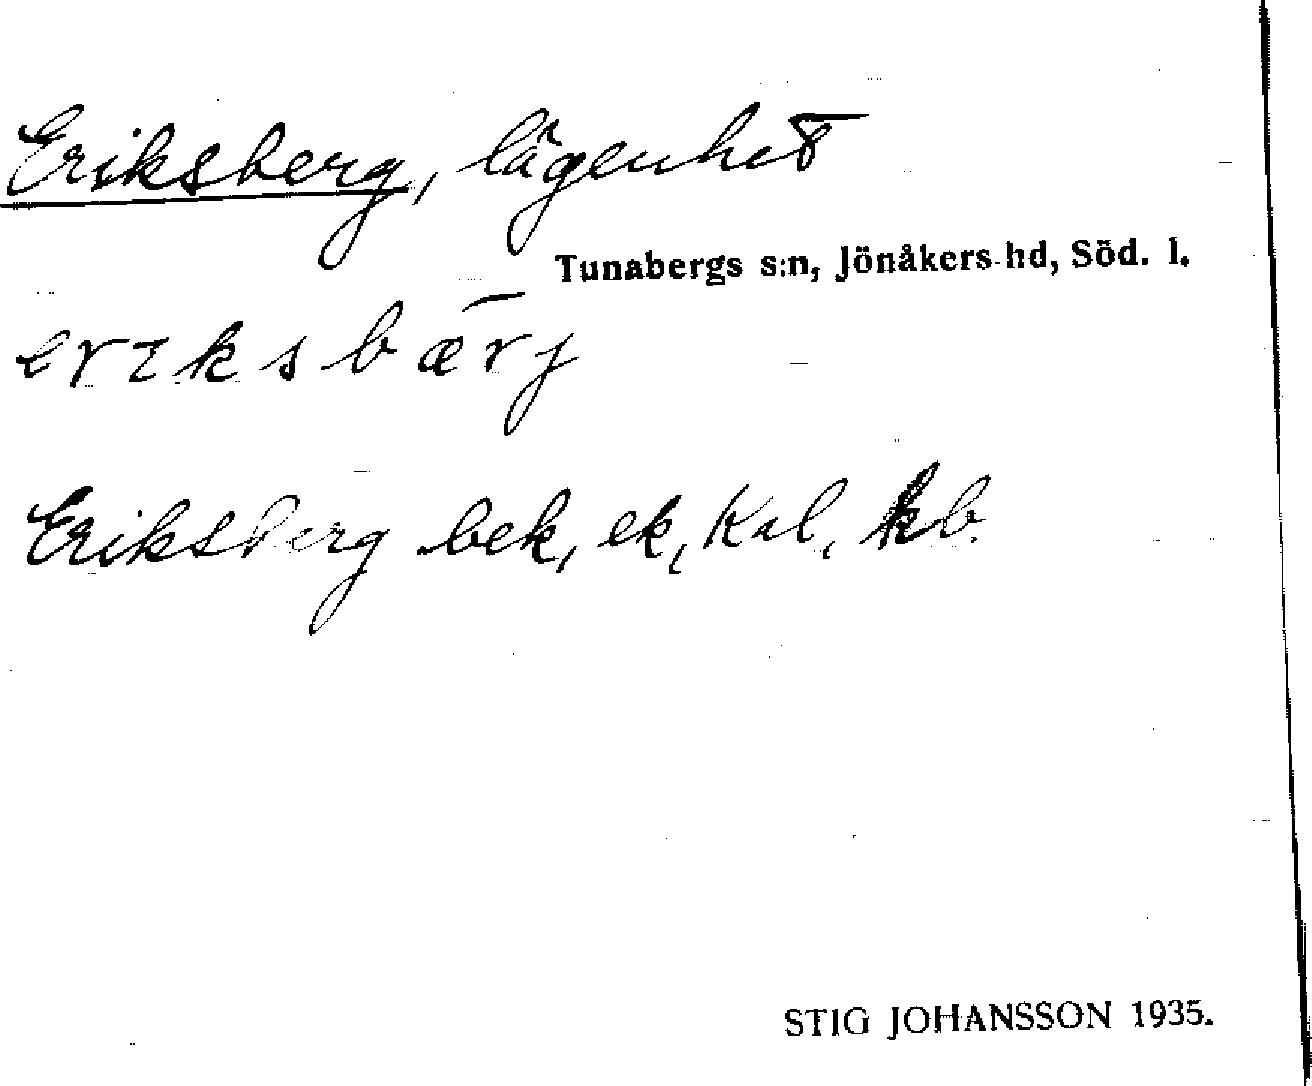 Eriksberg, lägenhet
Tunabergs s:n, Jönåkers hd, Söd. l.
erıksbærj
Eriksberg bek, ek, Kal, kb.
STIG JOHANSSON 1935.